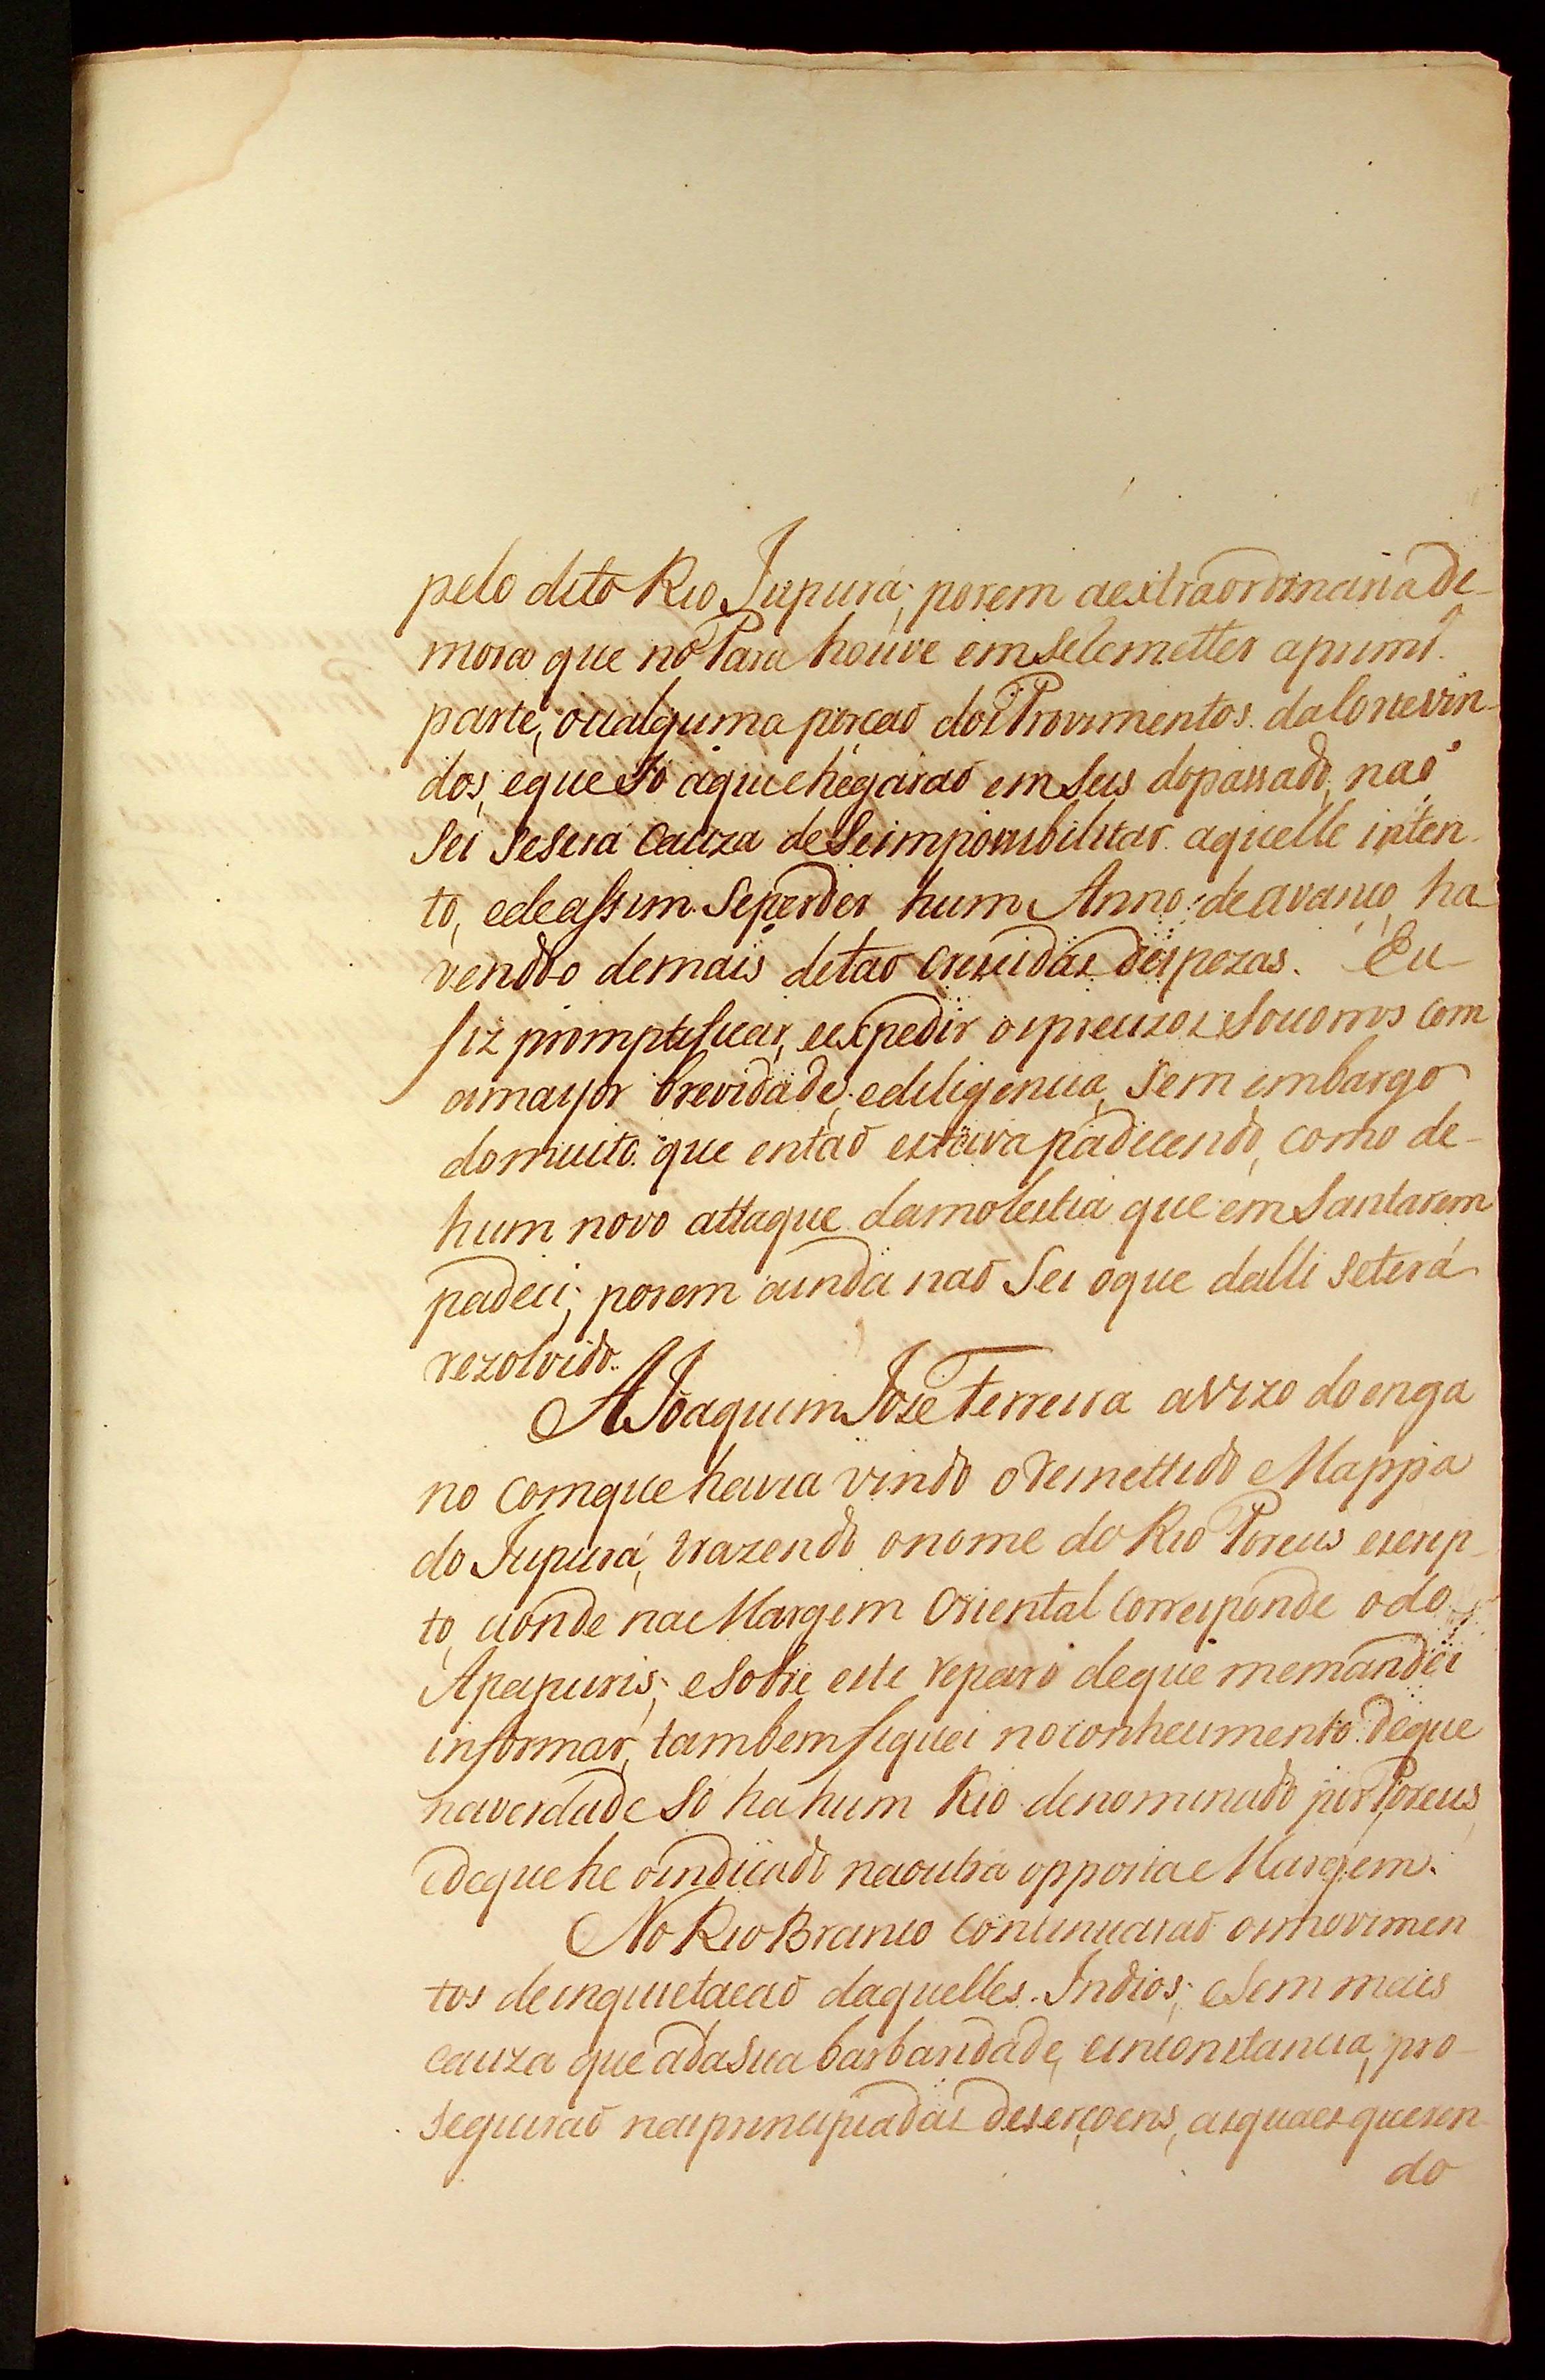 pelo dito Rio Jupurá; porem aextraordinaria de-
mora que no Pará houve emSeremetter aprimr.ª
parte, oualguma porçaõ dos Provimentos daCorte vin-
dos, eque Só aquichegaraõ em Seis dopassado, naõ
Sei Seserá cauza deSeimpossibilitar aquelle inten-
to, edeassim Seperder hum Anno deavanço, ha
vendo-o demais detaõ crescidas despezas. Eu
fiz promptificar, eexpedir osprecizos Socorros com
amayor brevidade, ediligencia, Sem embargo
domuito que entaõ estava padecendo, como de-
hum novo attaque damolestia que em Santarem
padeci; porem ainda naõ Sei oque dalli Seterá
rezolvido.
A Joaquim Joze Ferreira avizo doenga
no comque havia vindo oremettido Mappa
do Jupurá, trazendo onome do Rio Poreus escrip-
to, aonde na Margem Oriental corresponde odo
Apapuris; eSobre este reparo deque memandei
informar, tambem fiquei noconhecimento deque
naverdade Só ha hum Rio denominado por Poreus,
edeque he oindicado naoutra opposta Margem.
No Rio Branco continuaraõ osmovimen
tos deinquietaçaõ daquelles Indios; eSem mais
cauza que adaSua barbaridade, einconstancia, pro-
Seguiraõ nasprincipiadas deserçoens, asquaes queren-
do